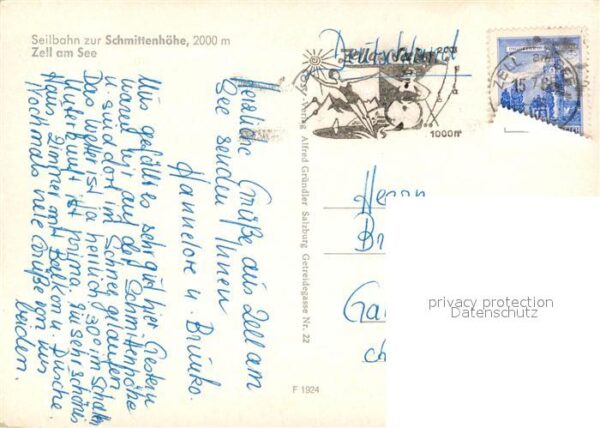 Seilbahn zur Schmittenhöhe, 2000 m
Zell am See
Herzliche Grüße aus Zell am
See senden Ihnen
Hannelore u. Bruno.
Uns gefällt es sehr gut hier. Gestern
waren wir auf der Schmittenhöhe
u. sind dort im Schnee gelaufen.
Das Wetter ist ja herrlich, 30° im Schatten
Unterkunft ist prima, ein sehr schönes
Haus, Zimmer mit Balkon u. Dusche.
Nochmals viele Grüße von uns
beiden.
Verlag Alfred Gründler Salzburg Getreidegasse Nr. 22
F 1924
Deutschland
2000
1000m
ZELL
15.7
Herrn
Br
Ga
privacy protection
Datenschutz